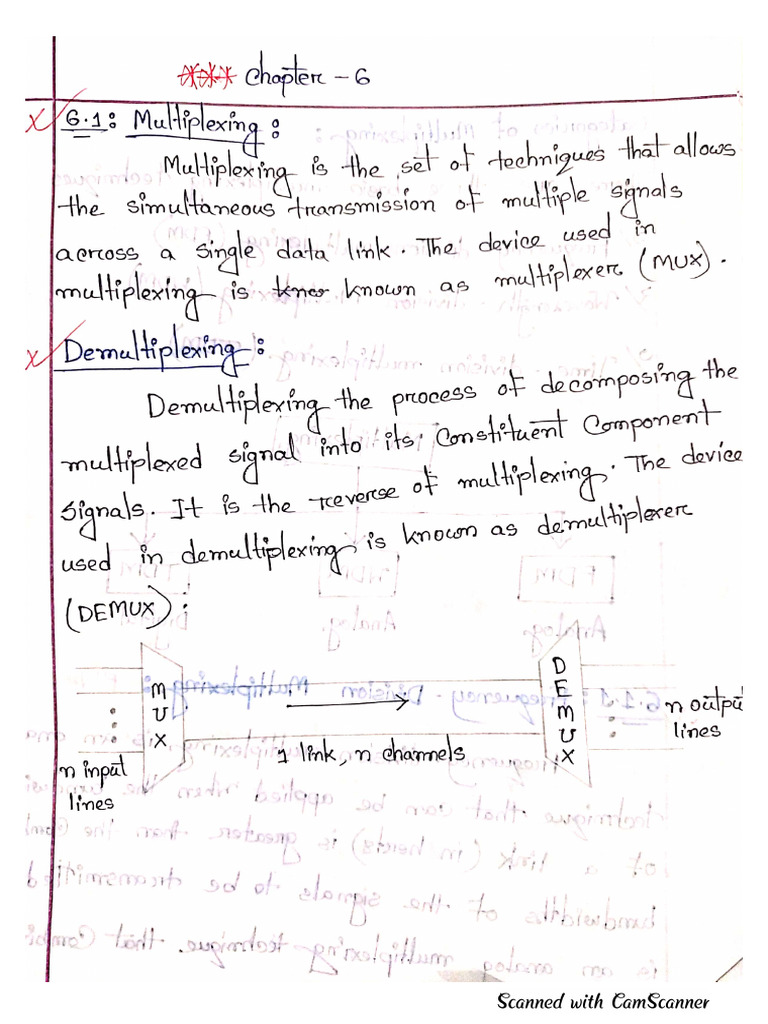 *** Chapter - 6
6.1: Multiplexing:
Multiplexing is the set of techniques that allows
the simultaneous transmission of multiple signals
across a single data link. The device used in
multiplexing is known as multiplexer (MUX).
Demultiplexing:
Demultiplexing the process of decomposing the
multiplexed signal into its Constituent Component
signals. It is the reverse of multiplexing. The device
used in demultiplexing is known as demultiplexer
(DEMUX):
MUX
DEMUX
n input
lines
1 link, n channels
n outpu
lines
Scanned with CamScanner